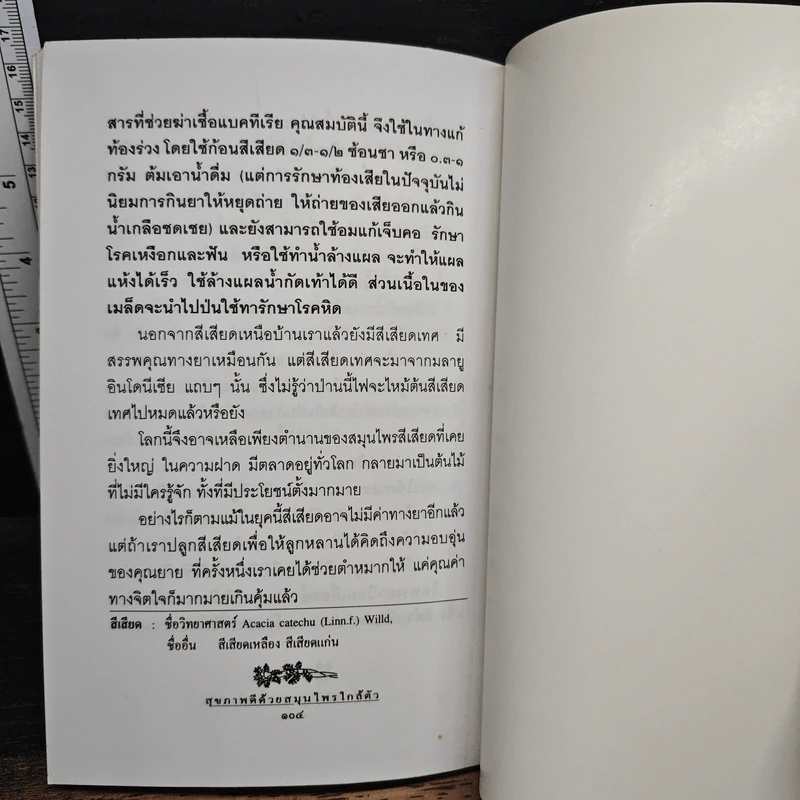 สารที่ช่วยฆ่าเชื้อแบคทีเรีย คุณสมบัตินี้ จึงใช้ในทางแก้
ท้องร่วง โดยใช้ก้อนสีเสียด ๑/๓-๑/๒ ช้อนชา หรือ ๐.๓-๑
กรัม ต้มเอาน้ำดื่ม (แต่การรักษาท้องเสียในปัจจุบันไม่
นิยมการกินยาให้หยุดถ่าย ให้ถ่ายของเสียออกแล้วกิน
น้ำเกลือชดเชย) และยังสามารถใช้อมแก้เจ็บคอ รักษา
โรคเหงือกและฟัน หรือใช้ทำน้ำล้างแผล จะทำให้แผล
แห้งได้เร็ว ใช้ล้างแผลน้ำกัดเท้าได้ดี ส่วนเนื้อในของ
เมล็ดจะนำไปป่นใช้ทารักษาโรคหิด
นอกจากสีเสียดเหนือบ้านเราแล้วยังมีสีเสียดเทศ มี
สรรพคุณทางยาเหมือนกัน แต่สีเสียดเทศจะมาจากมลายู
อินโดนีเซีย แถบๆ นั้น ซึ่งไม่รู้ว่าป่านนี้ไฟจะไหม้ต้นสีเสียด
เทศไปหมดแล้วหรือยัง
โลกนี้จึงอาจเหลือเพียงตำนานของสมุนไพรสีเสียดที่เคย
ยิ่งใหญ่ ในความฝาด มีตลาดอยู่ทั่วโลก กลายมาเป็นต้นไม้
ที่ไม่มีใครรู้จัก ทั้งที่มีประโยชน์ตั้งมากมาย
อย่างไรก็ตามแม้ในยุคนี้สีเสียดอาจไม่มีค่าทางยาอีกแล้ว
แต่ถ้าเราปลูกสีเสียดเพื่อให้ลูกหลานได้คิดถึงความอบอุ่น
ของคุณยาย ที่ครั้งหนึ่งเราเคยได้ช่วยตำหมากให้ แค่คุณค่า
ทางจิตใจก็มากมายเกินคุ้มแล้ว
สีเสียด : ชื่อวิทยาศาสตร์ Acacia catechu (Linn.f.) Willd,
ชื่ออื่น สีเสียดเหลือง สีเสียดแก่น
สุขภาพดีด้วยสมุนไพรใกล้ตัว
๑๐๔
17
16
15
14
13
12
11
5
4